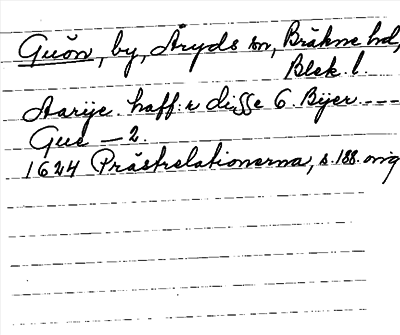 Guön, by, Åryds sn, Bräkne hd,
Blek. l.
Aarije. haff:r disse 6. Bijer ---
Gue — 2.
1624 Prästrelationerna, s. 188. orig